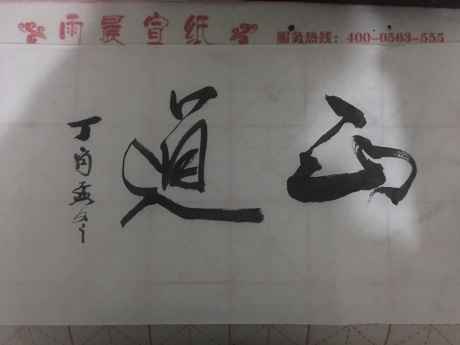 雨晨宣纸
服务热线：400-0563-555
正道
丁酉孟冬